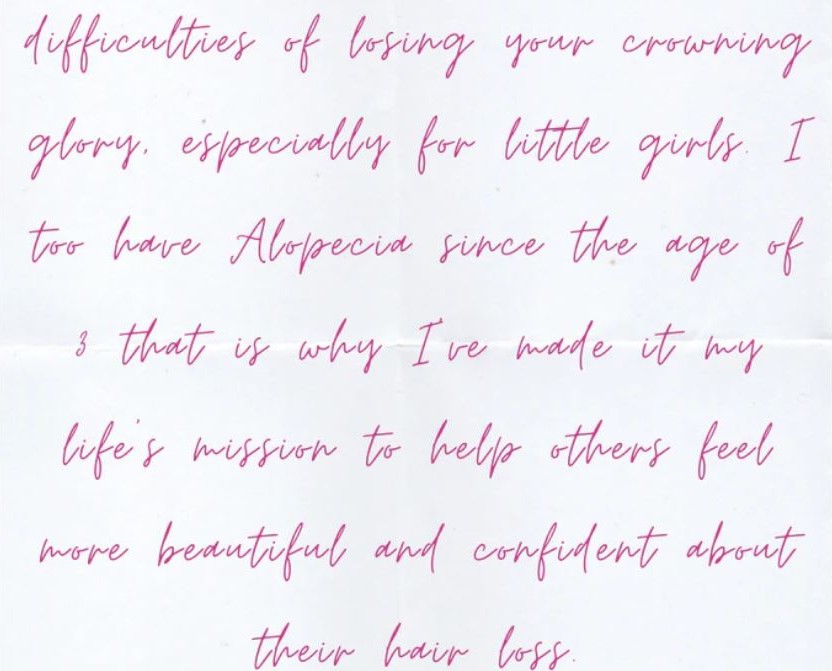 difficulties of losing your crowning
glory, especially for little girls. I
too have Alopecia since the age of
3 that is why I've made it my
life's mission to help others feel
more beautiful and confident about
their hair loss.